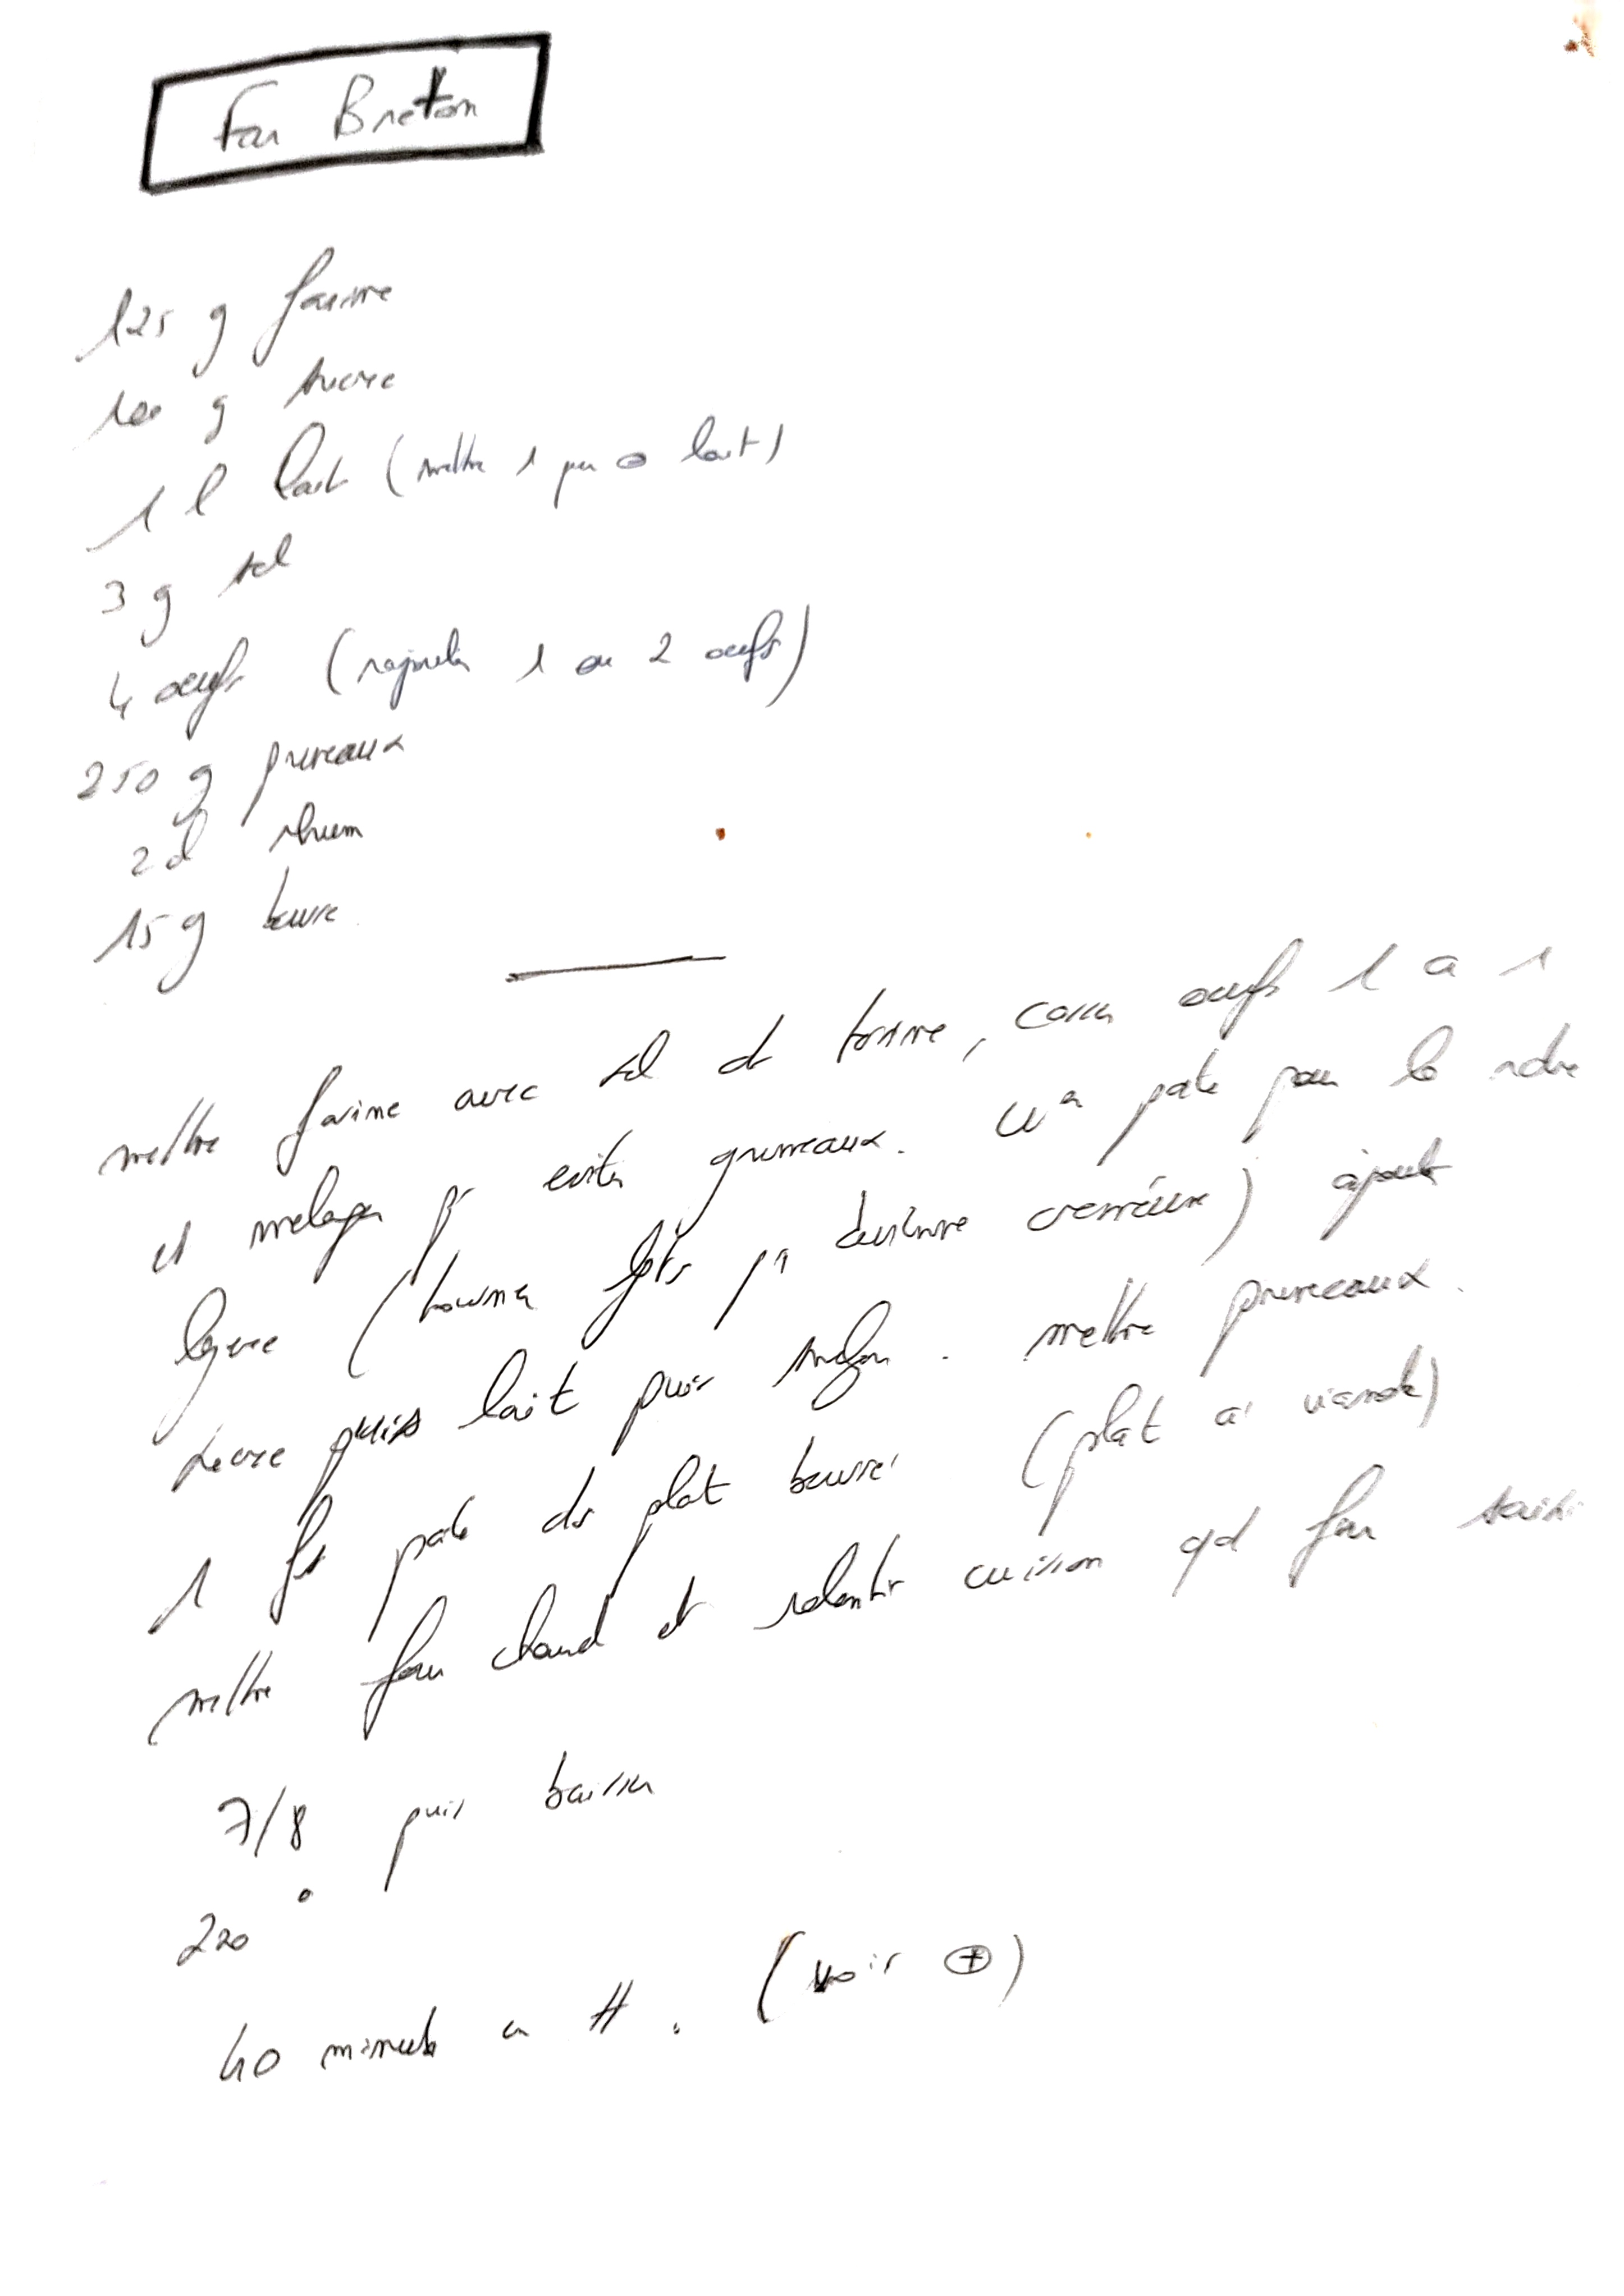 Far Breton
125 g farine
100 g sucre
1 l lait (mettre 1 peu ⊖ lait)
3 g sel
4 oeufs (rajouter 1 ou 2 oeufs)
250 g pruneaux
2 cl rhum
15 g beurre
mettre farine avec sel ds terrine, casser oeufs 1 à 1
et melanger pr eviter grumeaux. pate pour la rdre
legere (tourner lgtps pr devienne cremeuse) ajouter
sucre puis lait puis . mettre pruneaux.
1 fs pate ds plat beurré (plat à viande)
mettre four chaud et ralentir cuisson qd far saisi
7/8 puis baisser
220°
40 minutes en tt. (voir ⊕)